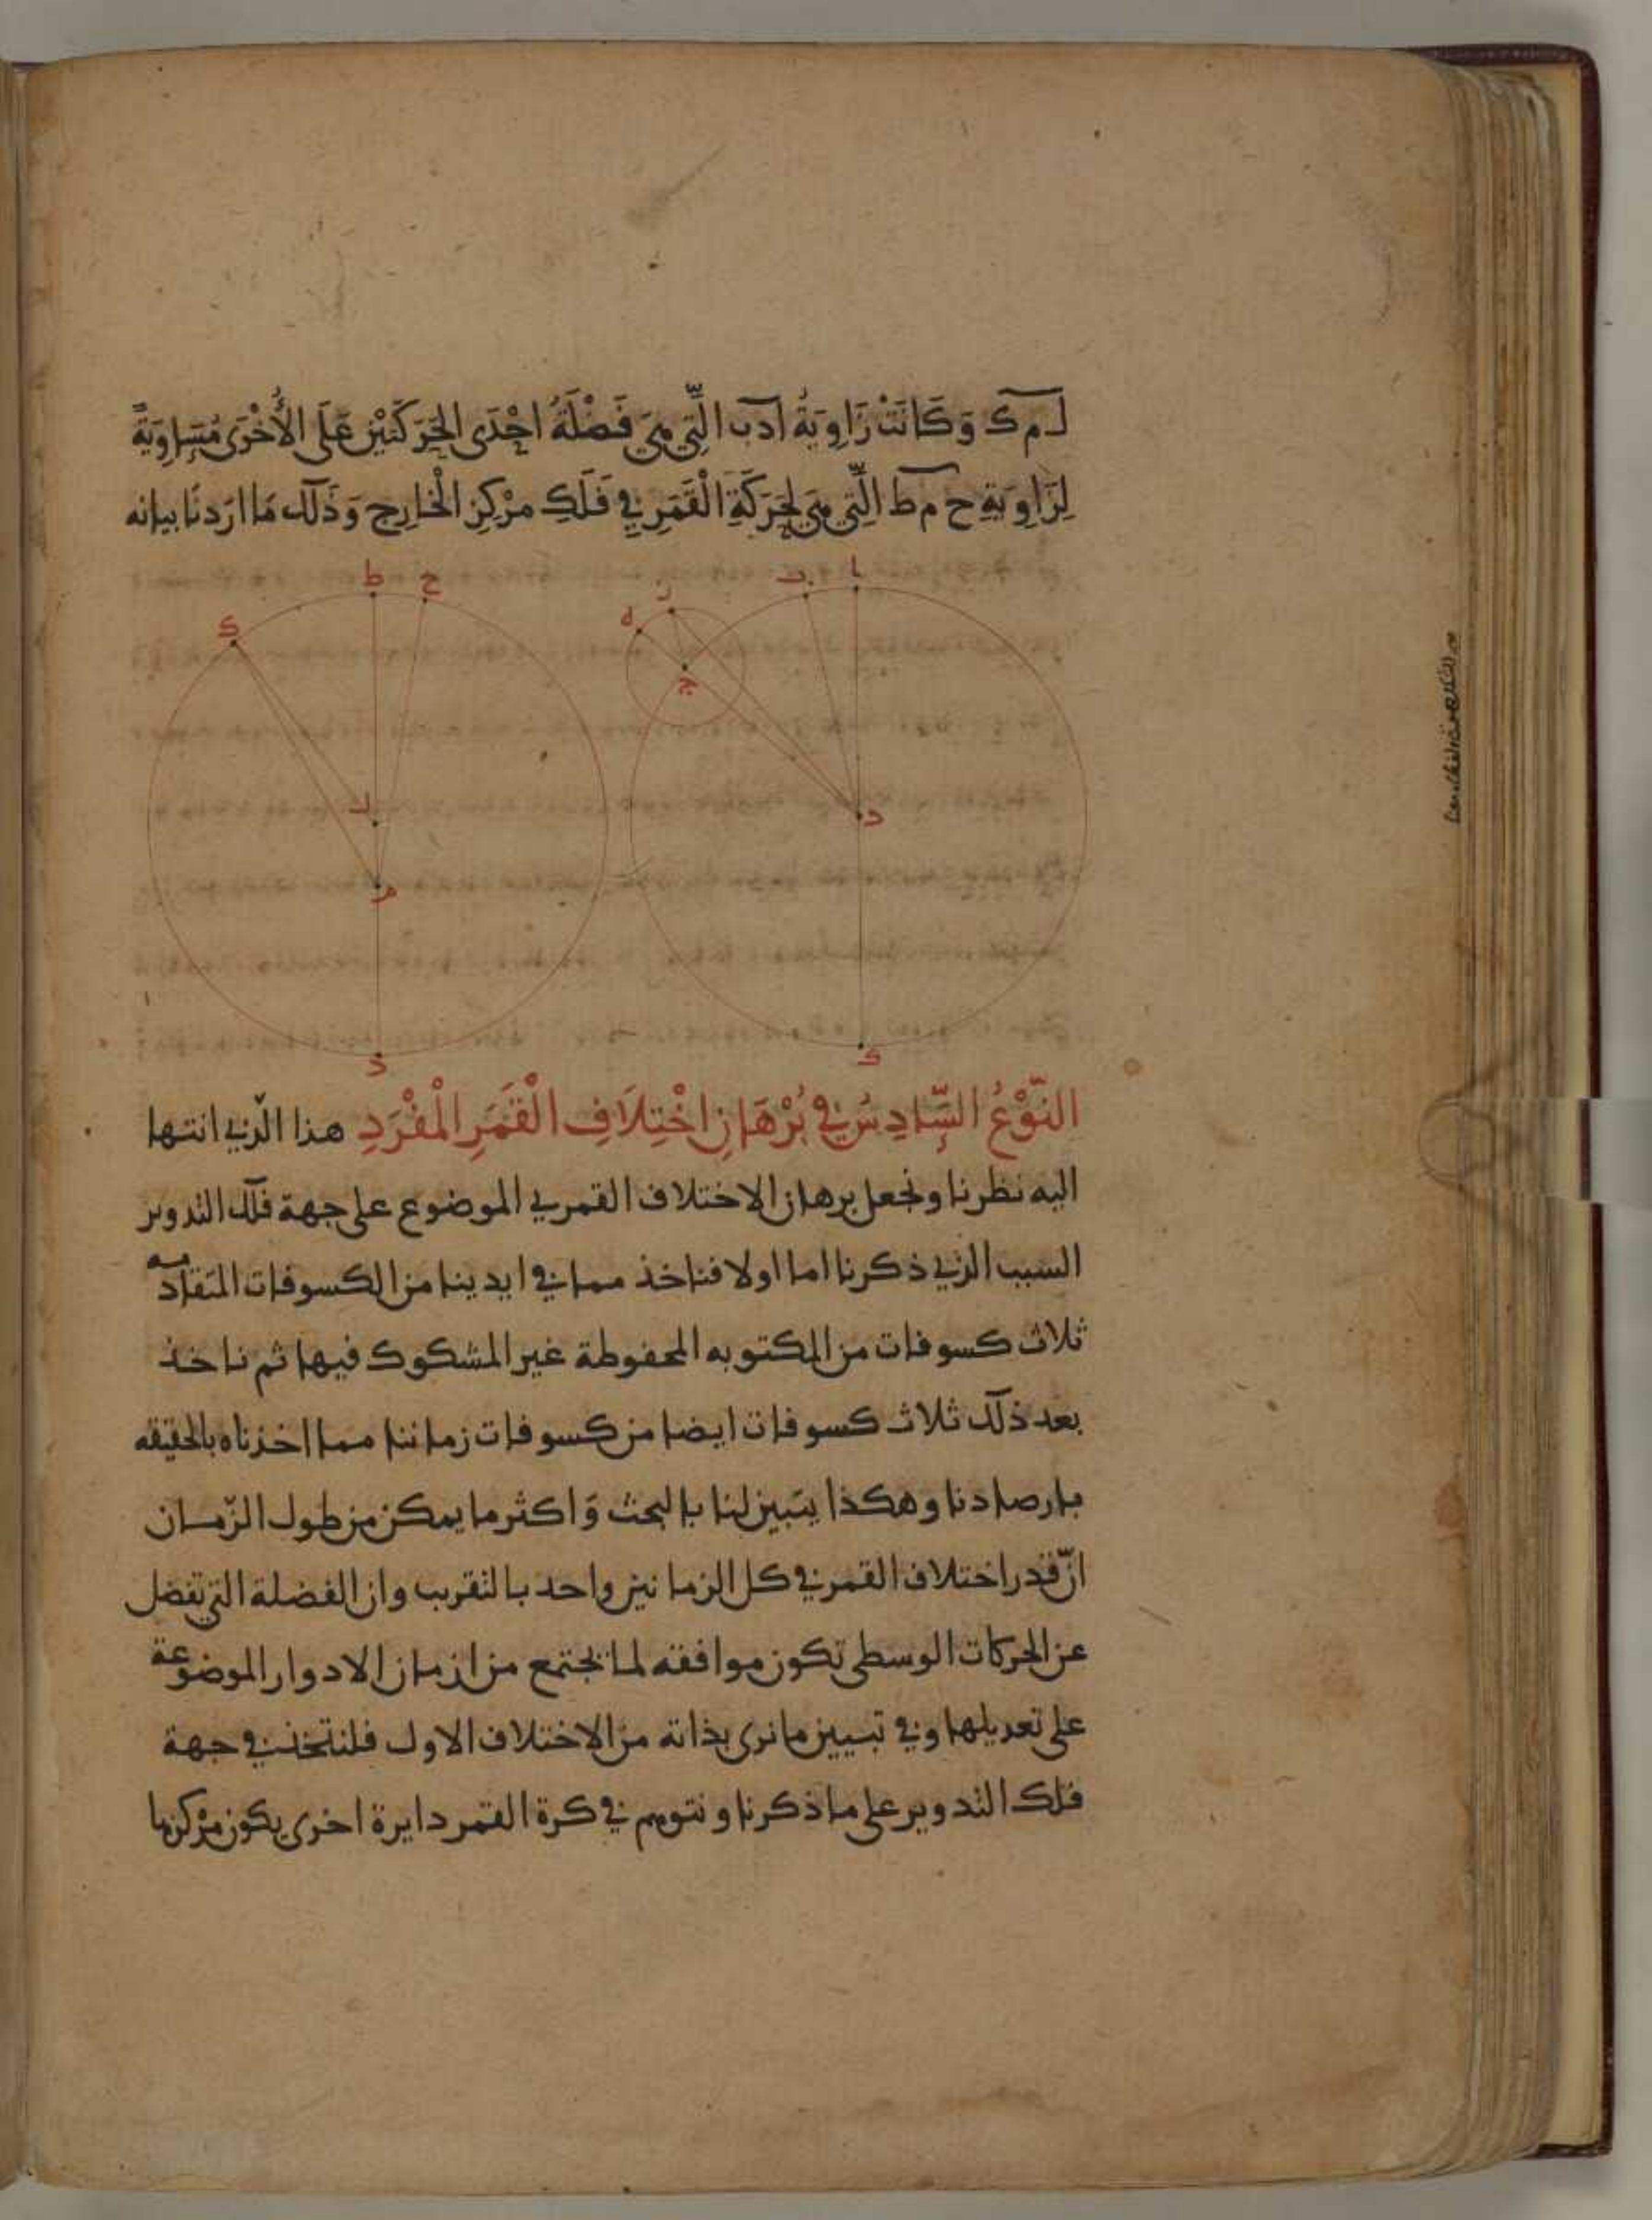 ل م ك وَكَانَتْ زَاوِيَةُ ا د ب الَّتِي هِيَ فَضْلَةُ احْدَى الحَرَكَتَيْنِ عَلَى الأُخْرَى مُسَاوِيَةً
لِزَاوِيَةِ ح م ط الَّتِي هِيَ لِحَرَكَةِ الْقَمَرِ فِي فَلَكِ مَرْكِزِ الْخَارِجِ وَذَلك مَا ارَدنَا بيانه
ط ح ز ب ا
ك ه
ج
ل د
م
د ك
النَّوْعُ السَّادِسُ فِي بُرْهَانِ اخْتِلَافِ الْقَمَرِ الْمفْرَدِ هذا الّذي انتها
اليه نظرنا ونجعل برهان الاختلاف القمري الموضوع على جهة فلك التدوير
السبب الذي ذكرنا اما اولا فناخذ مما في ايدينا من الكسوفات المتقادمه
ثلاث كسوفات من المكتوبه المحفوظة غير المشكوك فيها ثم ناخذ
بعد ذلك ثلاث كسوفات ايضا من كسوفات زماننا مما اخذناه بالحقيقه
بارصادنا وهكذا يتبين لنا بالبحث وَاكثر ما يمكن من طول الزّمان
انّ قدر اختلاف القمر في كل الزمانين واحد بالتقريب وان الفضلة التي تفضل
عن الحركات الوسطى تكون موافقه لما يجتمع من ازمان الادوار الموضوعة
على تعديلها وفي تبيين ما نرى بذاته من الاختلاف الاول فلنتخذ في جهة
فلك التدوير على ما ذكرنا ونتوهم في كرة القمر دايرة اخرى يكون مَرْكزها